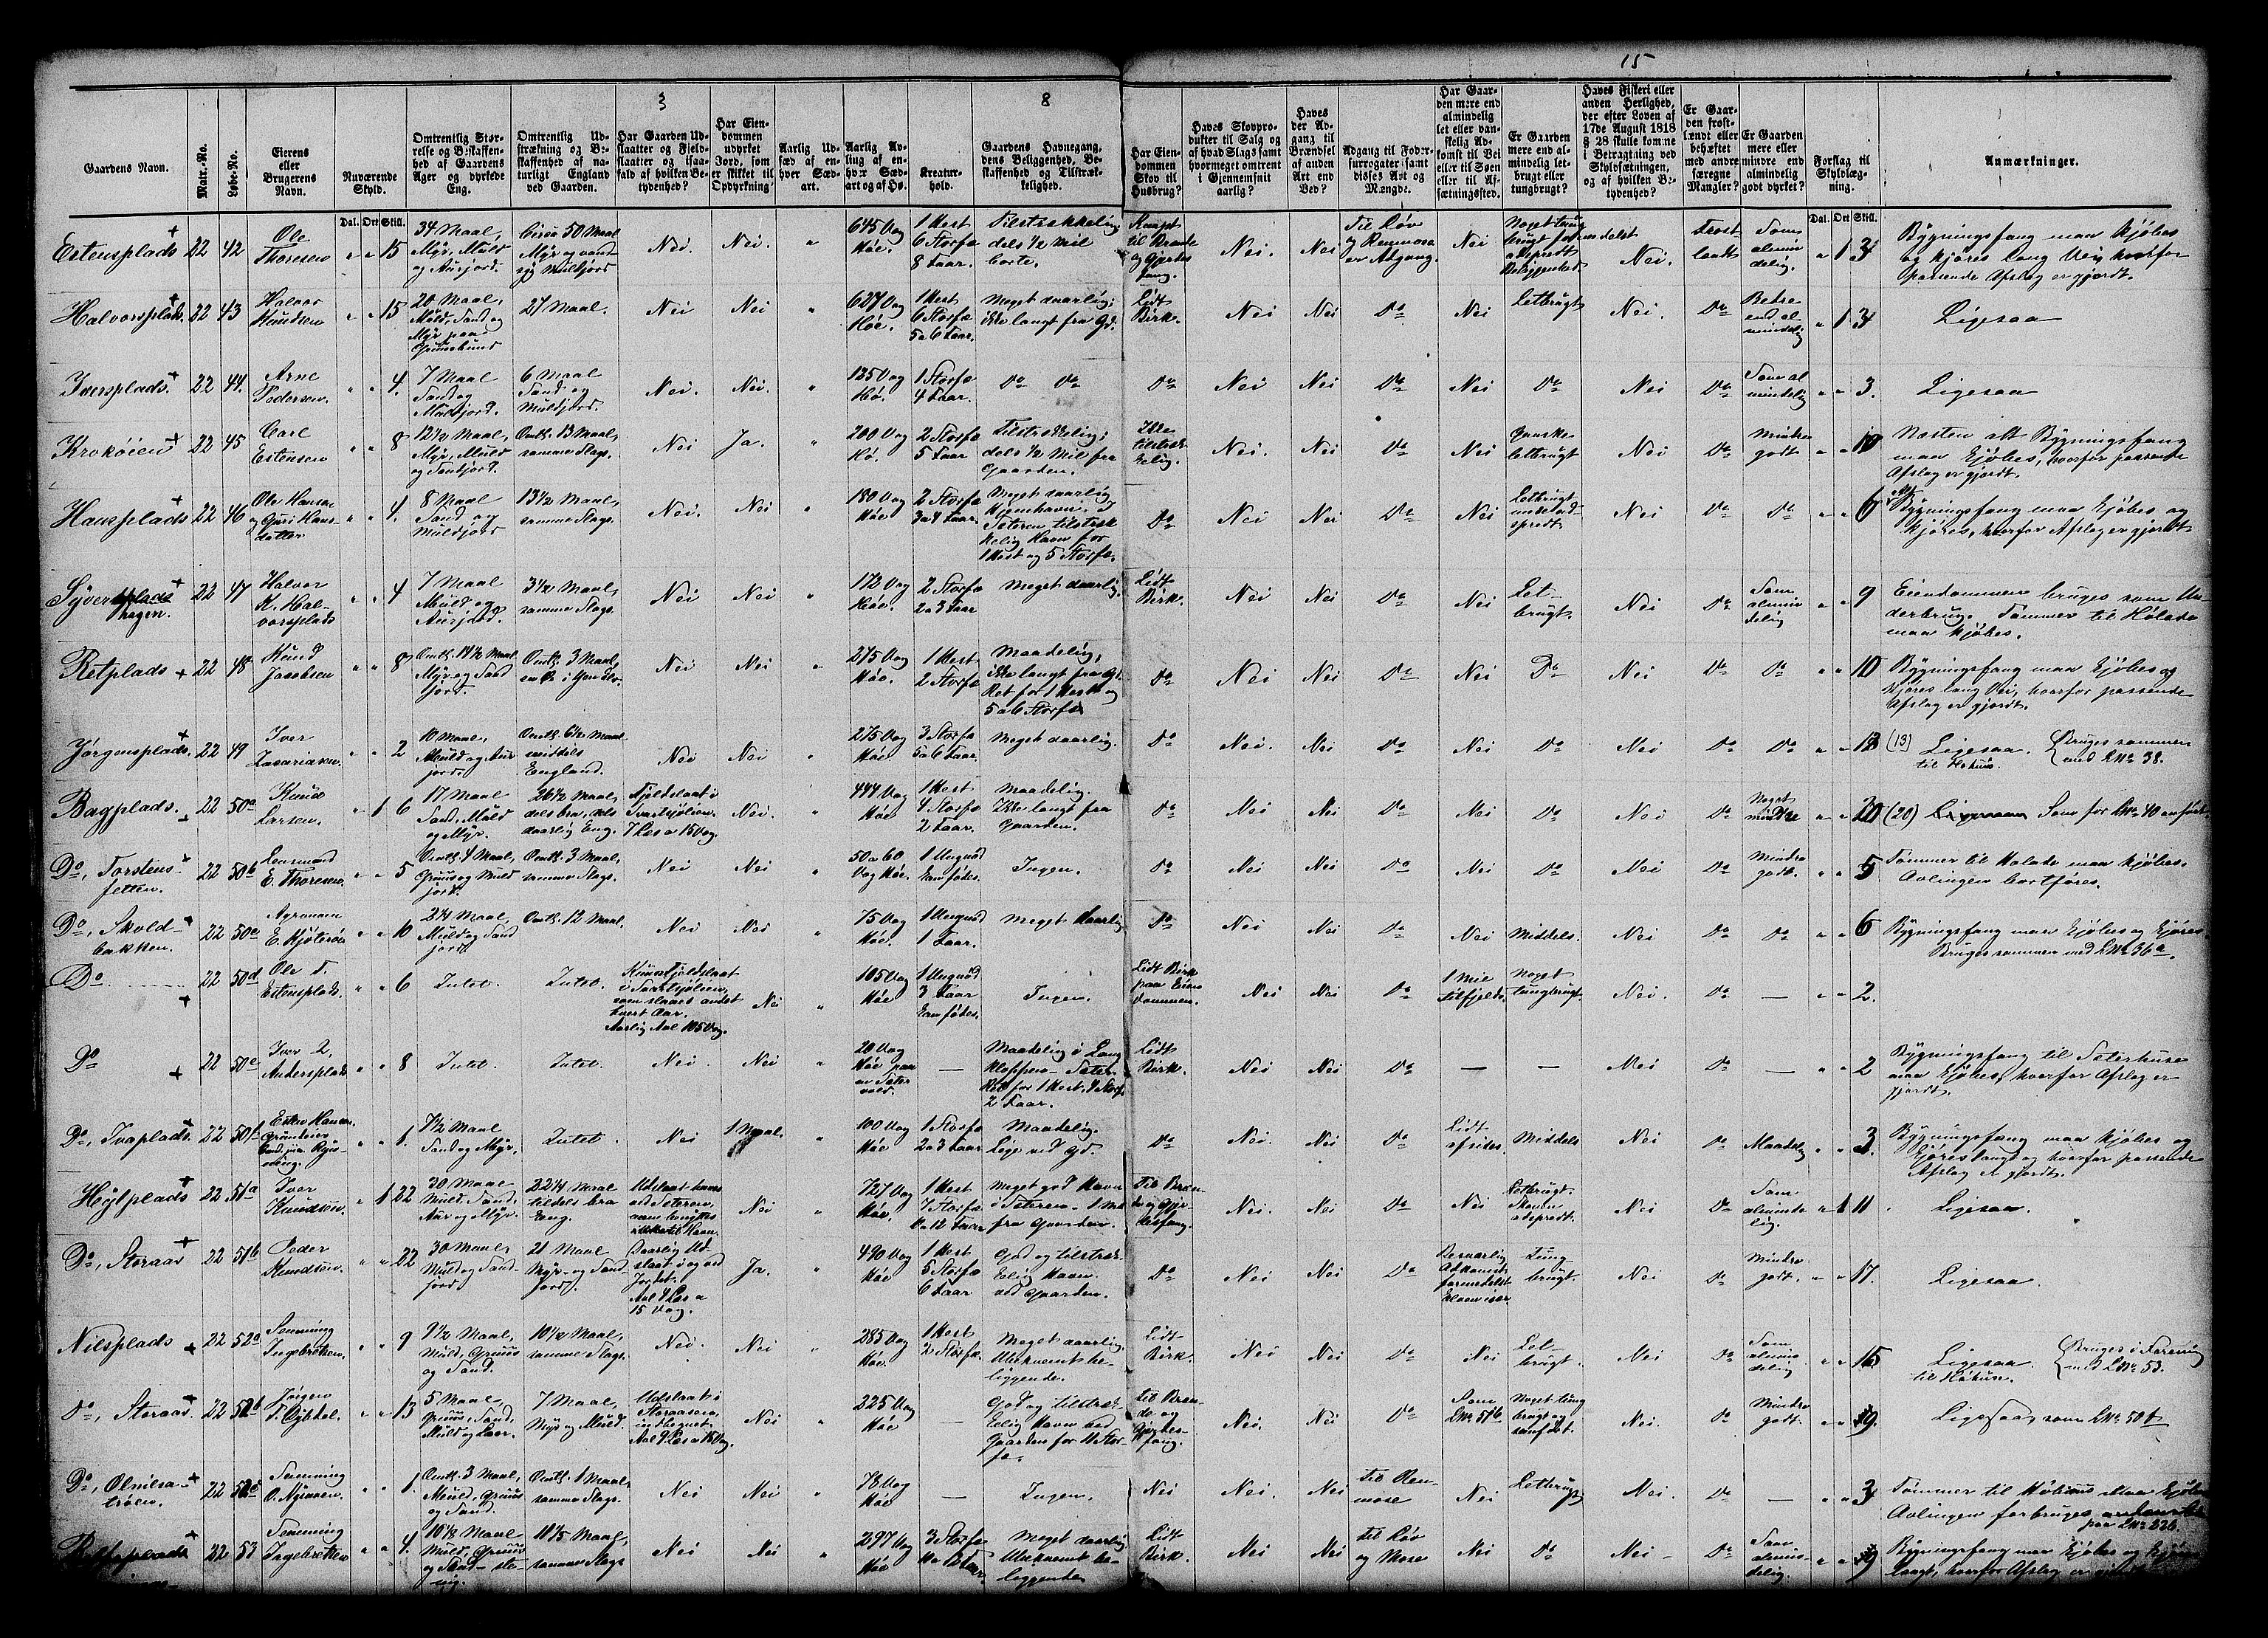 15
3
8
Gaardens Navn.
Matr.-No.
Løbe-No.
Eierens eller Brugerens Navn.
Nuværende Skyld.
Omtrentlig Størrelse og Beskaffenhed af Gaardens Ager og dyrkede Eng.
Omtrentlig Udstrækning og Beskaffenhed af naturligt England ved Gaarden.
Har Gaarden Udslaatter og Fjeldslaatter og isaafald af hvilken Betydenhed?
Har Eiendommen udyrket Jord, som er skikket til Opdyrkning?
Aarlig Udsæd af enhver Sædart.
Aarlig Avling af enhver Sædart og af Hø.
Kreaturhold.
Gaardens Havnegang, dens Beliggenhed, Beskaffenhed og Tilstrækkelighed.
Har Eiendommen Skov til Husbrug?
Haves Skovprodukter til Salg og af hvad Slags samt hvormeget omtrent i Gjennemsnit aarlig?
Haves der Adgang til Brændsel af anden Art end Ved?
Adgang til Fodersurrogater samt disses Art og Mængde.
Har Gaarden mere end almindelig let eller vanskelig Adkomst til Vei eller til Søen eller til Afsætningssted.
Er Gaarden mere end almindelig letbrugt eller tungbrugt?
Haves Fiskeri eller anden Herlighed, der efter Loven af 17de August 1818 § 28 skulle komme i Betragtning ved Skyldsætningen, og af hvilken Betydenhed?
Er Gaarden frostlændt eller behæftet med andre særegne Mangler?
Er Gaarden mere eller mindre end almindelig godt dyrket?
Forslag til Skyldlægning.
Anmærkninger.
Dal. Ort Skill.
Dal. Ort Skill.
Estensplads 22 42 Ole Thoresen " " 15 34 Maal, Myr, Muld og Aurjord. Circa 50 Maal Myr og Muldjord Nei. Nei. " 645 Vog Høe. 1 Hest 6 Storfæ 8 Faar. Tilstrækkelig dels 1/2 Mil borte. Nei. Nei Til Løv og Renmose er Adgang. Nei Noget tungbrugt formedelst adspredt Beliggenhed Nei. Frostlændt Som almindelig. " 1 3 Bygningsfang maa kjøbes og kjøres lang Vei, hvorfor passende Afslag er gjordt.
Halvorsplads 22 43 Halvor Knudsen " " 15 20 Maal, Muld, Sand og Myr paa Gruusbund 27 Maal. Nei Nei " 627 Vog Høe. 1 Hest 6 Storfæ 5 a 6 Faar. Meget daarlig; ikke langt fra Gd. Lidt Birk. Nei Nei Do Nei Letbrugt Nei. Do Bedre end almindelig " 1 3 Ligesaa
Iversplads 22 44. Arne Pedersen. " " 4. 7 Maal Sand og Muldjord. 6 Maal Sand og Muldjord. Nei. Nei. " 125 Vog Hø. 1 Storfæ 4 Faar. Do Do Do Nei Nei Do Nei Do Nei Do Som almindelig " " 3. Ligesaa
Krokøien 22 45 Carl Estensen " " 8 12 1/2 Maal, Myr, Muld og Sandjord. Omtr. 13 Maal, samme Slags. Nei Ja. " 200 Vog Hø. 2 Storfæ 5 Faar Tilstrækkelig; dels 1/2 Mil fra Gaarden. Ikke tilstrækkelig. Nei. Nei Do Nei Ganske letbrugt Nei Do Mindre godt " " 10 Næsten alt Bygningsfang maa kjøbes, hvorfor passende Afslag er gjordt.
Hansplads 22 46 Ole Hansen og Guri Hansdatter " " 4. 8 Maal Sand og Muldjord 13 1/2 Maal, samme Slags. Nei. Nei " 180 Vog Høe 2 Storfæ 3 a 4 Faar. Meget daarlig Hjemhavn; i Sæteren tilstrækkelig Havn for 1 Hest og 5 Storfæ. Do Nei Nei Do Nei Letbrugt men adspredt Nei Do Do " " 6 Bygningsfang maa kjøbes og kjøres, hvorfor Afslag er gjordt
Syvershagen. 22 47 Halvor K. Halvorsplads " " 4 7 Maal Muld og Aurjord. 3 1/2 Maal, samme Slags. Nei Nei " 172 Vog Høe. 2 Storfæ 2 a 3 Faar Meget daarlig. Lidt Birk. Nei Nei Do Nei Letbrugt. Nei Do Som almindelig " " 9 Eiendommen bruges som Underbrug. Tømmer til Hølade maa kjøbes.
Retplads 22 48 Knud Jacobsen " " 8 Omtr. 14 1/2 Maal. Myr og Sandjord. Omtr. 3 Maal Nei Nei " 275 Vog Høe. 1 Hest 2 Storfæ Maadelig, ikke langt fra Gd. Ret for 1 Hest og 5 a 6 Storfæ Do Nei Nei Do Nei Do Nei Do Do " " 10 Bygningsfang maa kjøbes og kjøres lang Vei, hvorfor passende Afslag er gjordt.
Jørgensplads. 22 49 Iver Zacariasen. " " 2 10 Maal, Muld og Aurjord. Omtr. 6 1/2 Maal middels England. Nei Nei " 275 Vog Høe 3 Storfæ 5 a 6 Faar. Meget daarlig. Do Nei. Nei Do Nei Do Nei Do Do " " 13 (13) Ligesaa til Høhuus. Bruges sammen med LNr. 38.
Bagplads. 22 50a Knud Larsen. " 1 6 17 Maal Sand, Muld og Myr. 26 1/2 Maal, dels bra, dels daarlig Eng. Fjeldslaat i 7 Læs a 15 Vog. Nei. " 444 Vog Høe 1 Hest 4 Storfæ 2 Faar. Maadelig. Ikke langt fra Gaarden. Do Nei Nei Do Nei Do Nei Do Noget mindre " " 20 (20) Som for LNr. 40 anført.
Do, Torstensfetten. 22 50b Lensmand E. Thoresen. " " 5 Omtr. 4 Maal, Gruus og Muldjord. Omtr. 3 Maal, samme Slags. Nei Nei " 50 a 60 Vog Høe. 1 Ungnød kan fødes. Ingen. Do Nei Nei Do Nei Do Nei Do Mindre godt. " " 5 Tømmer til Hølade maa kjøbes. Avlingen bortføres.
Do, Skoldbakken. 22 50c Agronom E. " " 10 24 Maal, Muld og Sandjord. Omtr. 12 Maal. Nei Nei " 75 Vog Høe. 1 Ungnød 1 Faar. Meget daarlig Do Nei Nei Do Nei Middels. Nei Do Do " " 6 Bygningsfang maa kjøbes og kjøres. Bruges sammen med LNr. 36a.
Do 22 50d Ole T. Estensplads. " " 6 Intet. Intet. Kuns Fjeldslaat som slaaes andet hvert Aar. Aarlig Avl 105 Vog. Nei " 105 Vog Høe 1 Ungnød 3 Faar kan fødes. Ingen. Lidt Birk paa Eiendommen. Nei Nei Do 1 Mil tilfjelds. Noget tungbrugt. Nei. Do — " " 2.
Do 22 50e Iver Andersplads " " 8 Intet. Intet. Nei. Nei " 20 Vog Høe paa en Sætervold. — Maadelig i Sæter. Ret for 1 Hest, 4 Storfæ 2 Faar. Lidt Birk. Nei Nei Do — — Nei Do — " " 2 Bygningsfang til Sæterhuse maa kjøbes, hvorfor Afslag er gjordt.
Do, Ivaplads. 22 50f " " 1. 7 1/2 Maal Sand og Myr. Intet. Nei 1 Maal. " 100 Vog Høe 1 Storfæ 2 a 3 Faar Maadelig. Lige ved Gd. Do Nei. Nei Do Lidt afsides. Middels Nei Do Maadelig " " 3 Bygningsfang maa kjøbes og kjøres langt og hvorfor passende Afslag er gjordt.
Høylplads 22 51a Iver Knudsen. " 1 22 30 Maal Muld, Sand, Aur og Myr. tildels bra Eng. Nei " 727 Vog Høe. 1 Hest 7 Storfæ Meget god Havn i Sæteren 1 Mil fra Gaarden. Nei. Nei Do Nei Letbrugt. Nei Do Som almindelig. " 1 11 Ligesaa.
Do, Storaas 22 51b Peder Knudsen. " " 22 30 Maal, Muld og Sandjord. 21 Maal Myr- og Sandjord. Daarlig Udslaat Avl 4 Læs a 15 Vog. Ja. " 490 Vog Høe 1 Hest 5 Storfæ 6 Faar God og tilstrækkelig Havn ved Gaarden. Do Nei Nei Do Besværlig Adkomst formedelst Elven især Tungbrugt. Nei Do Mindre godt. " " 17. Ligesaa.
Nilsplads 22 52a Semming Ingebretsen. " " 9 9 1/2 Maal, Muld, Gruus og Sand. 10 1/2 Maal, samme Slags. Nei. Nei " 285 Vog Høe 1 Hest 2 Storfæ. Meget daarlig. Ubekvemt beliggende. Lidt Birk. Nei Nei Do Nei Letbrugt. Nei Do Som almindelig " " 15 Ligesaa til Høhuus. Bruges i Forening med LNr. 53.
Do, Storaas. 22 52b Jørgen " " 13 5 Maal, Gruus, Sand, Muld og Leer. 7 Maal, Myr og Muld. Udslaat i Storaasen, indbegnet. Avl 9 Læs a 15 Vog. Nei " 225 Vog Høe — God og tilstrækkelig Havn ved Gaarden for 11 Storfæ. Til Brænde og Gjerdesfang. Nei. Nei Do Som LNr. 51b Noget tungbrugt og Nei. Do Mindre godt. " " 9. Ligesaa, som LNr. 50f
Do, 22 52c Semming O. " " 1. Omtr. 3 Maal, Muld, Gruus og Sand. Omtr. 1 Maal, samme Slags. Nei Nei " 78 Vog Høe — Ingen. Nei Nei. Nei Til Renmose Nei Letbrugt Nei. Do — " " 3 Tømmer til Høhuus maa kjøbes Avlingen forbruges paa LNr. 52b
22 53 Semming Ingebretsen " " 4. 10 1/2 Maal Muld, Gruus og Sand- 10 1/5 Maal, samme Slags Nei Nei " 297 Vog Høe 3 Storfæ Meget daarlig Ubekvemt beliggende Lidt Birk. Nei Nei Til Løv og Mose Nei Do Nei Do Som almindelig. " " 9 Bygningsfang maa kjøbes og kjøres langt, hvorfor Afslag er